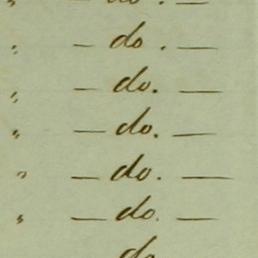 „ — do. —
„ — do. —
„ — do. —
„ — do. —
„ — do. —
„ — do. —
do